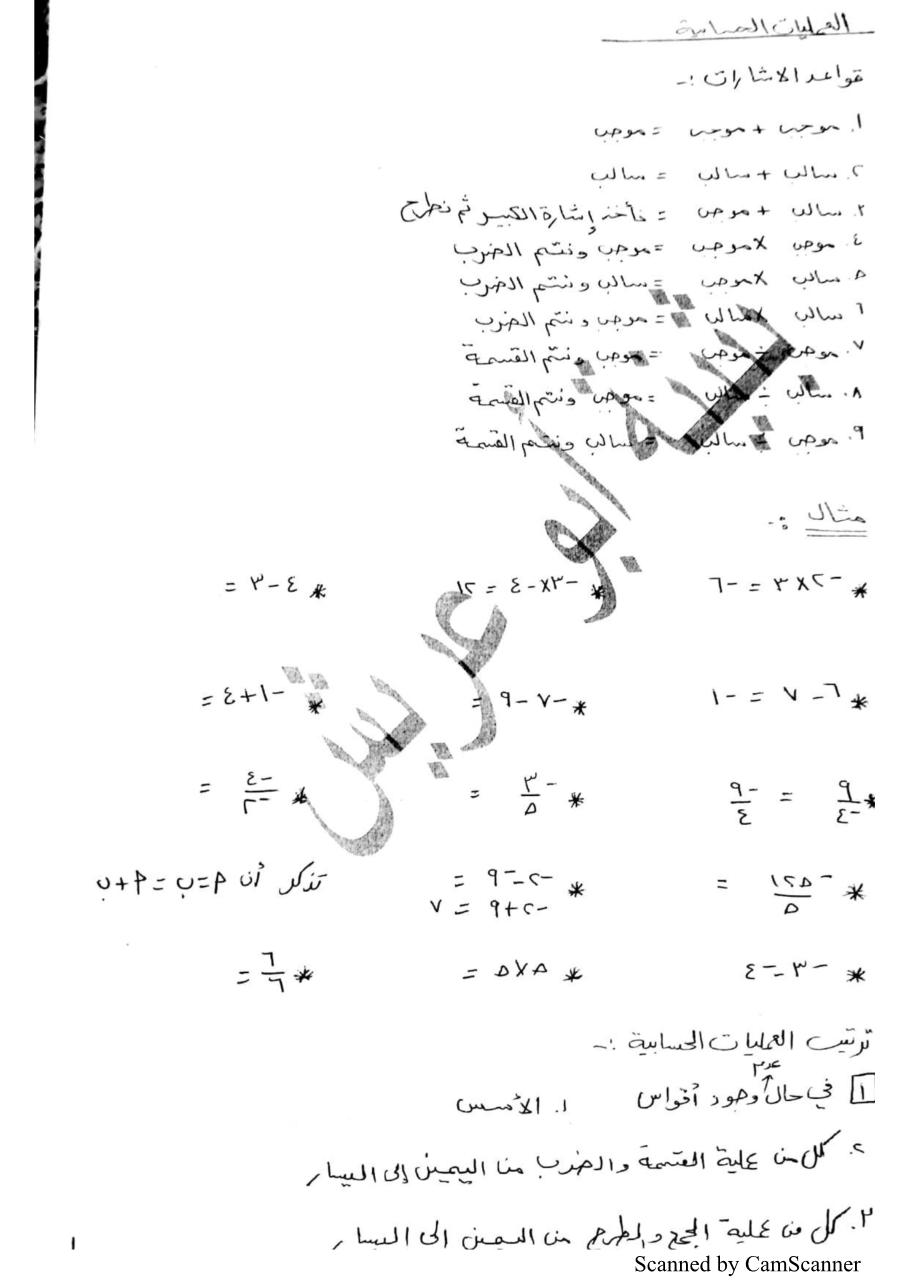 العمليات الحسابية
قواعد الاشارات :-
١. موجب + موجب = موجب
٢. سالب + سالب = سالب
٣. سالب + موجب = نأخذ إشارة الكبير ثم نطرح
٤. موجب × موجب = موجب ونتمم الضرب
٥. سالب × موجب = سالب ونتمم الضرب
٦. سالب × سالب = موجب ونتمم الضرب
٧. موجب ÷ موجب = موجب ونتمم القسمة
٨. سالب ÷ سالب = موجب ونتمم القسمة
٩. موجب ÷ سالب = سالب ونتمم القسمة
مثال :-
* -٢×٣ = -٦ * -٣×-٤ = ١٢ * ٤-٣ =
* ٦-٧ = -١ * -٧-٩ = * -١+٤ =
* ٩/-٤ = -٩/٤ * -٣/٥ = * -٤/-٢ =
* -١٢٥/٥ = * -٢--٩ = تذكر أن م=ب=م+ب
-٢+٩ = ٧
* -٣--٤ * ٥×٥ = * ٦/٦ =
ترتيب العمليات الحسابية :-
١ في حال عدم وجود أقواس ١. الأسس
٢. كل من عملية القسمة والضرب من اليمين إلى اليسار
٣. كل من عملية الجمع والطرح من اليمين الى اليسار
١
بثينة أبو عريش
Scanned by CamScanner